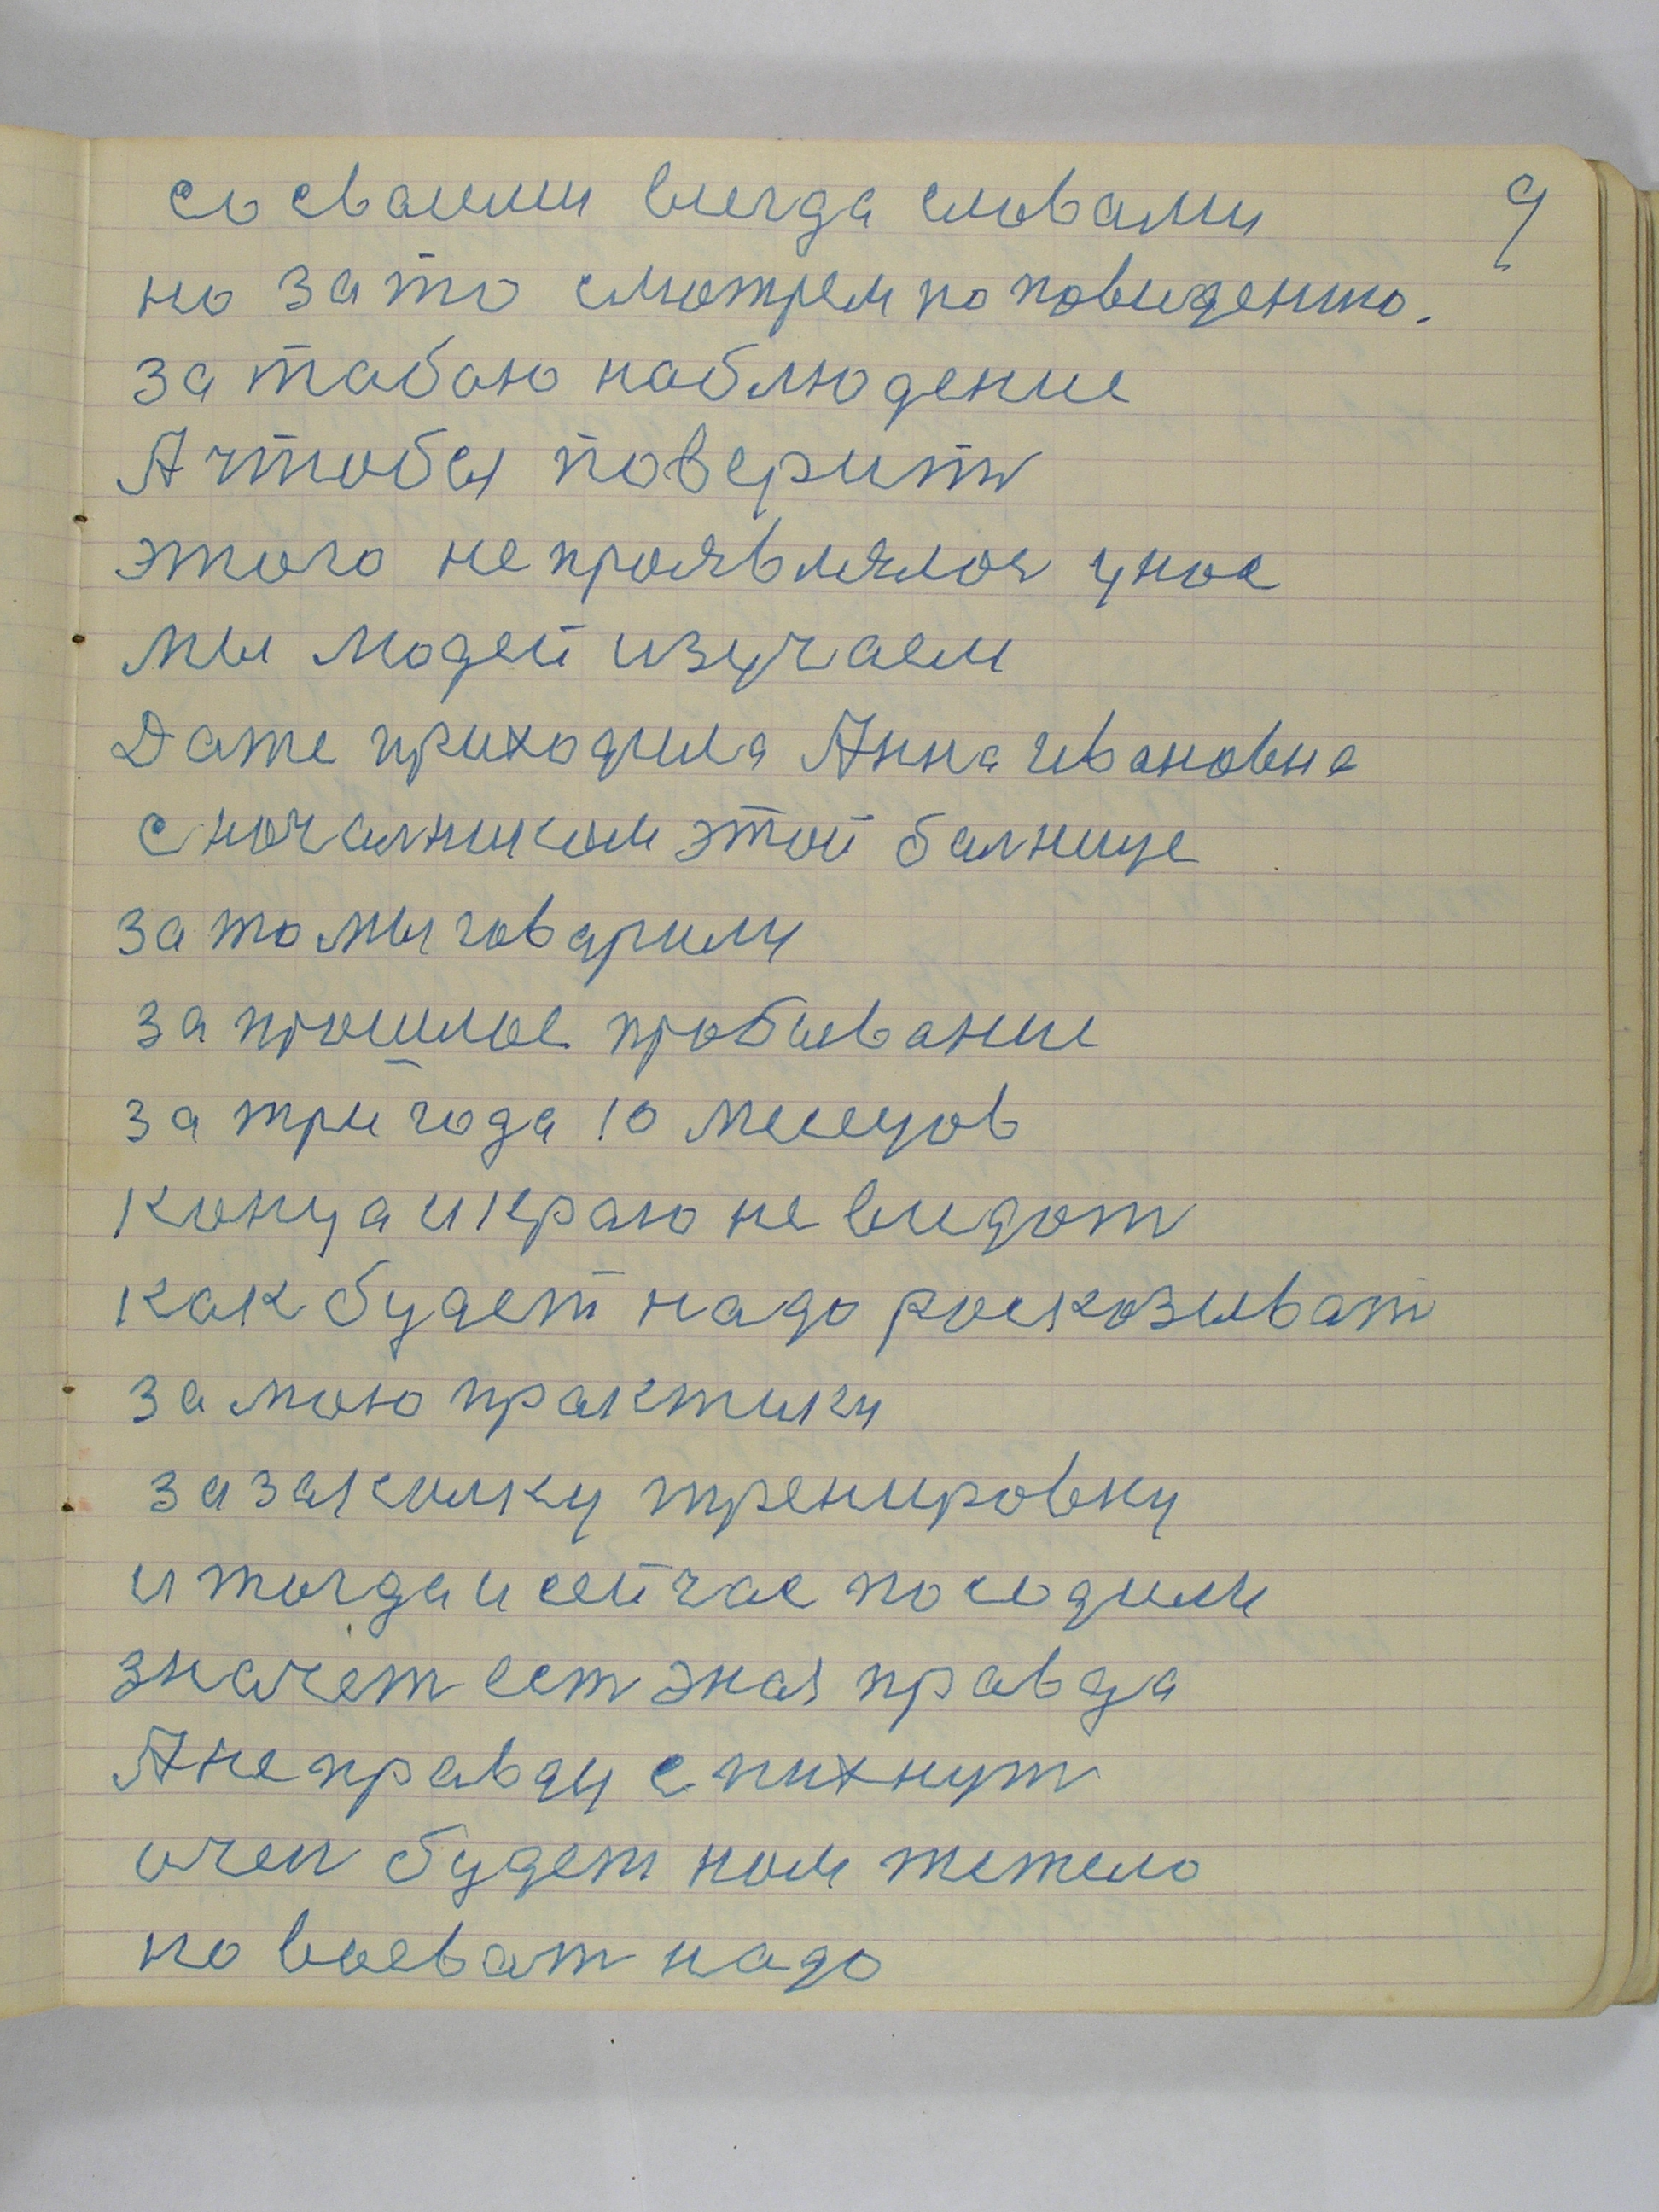 со сваими всегда словами
9
но за то смотрем по повидению.
за табаю наблюдение
А чтобы поверить
этого не проявлялося у нос
мы людей изучаем
Даже приходила Анна ивановна
с ночалником этой балнице
за то мы говарили
за прошлое пробывание
за три года 10 месецов
конца и краю не видот
как будет надо роскозыват
за мою практику
за закалку тренировку
и тогда и сейчас посодили
значет ест эная правда
А не правду спихнут
очен будет ном тежело
но воеват надо